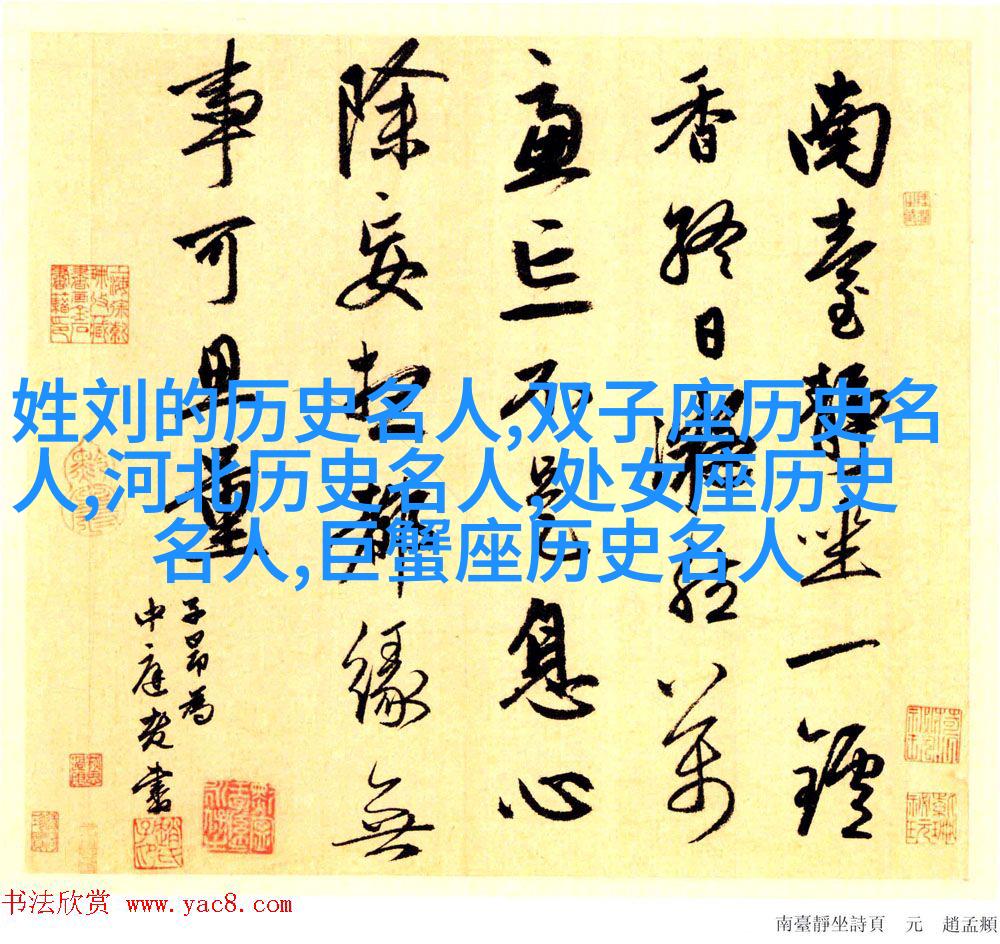 南臺靜坐一鑪
香終日凝然萬
慮亡不是息心
除妄想緣無
事可思量
子昂為
中庭老書
姓刘的历史名人,双子座历史名
人,河北历史名人,处女座历史
名人,巨蟹座历史名人
书法欣赏 www.yac8.com
南臺靜坐詩頁 元 趙孟頫